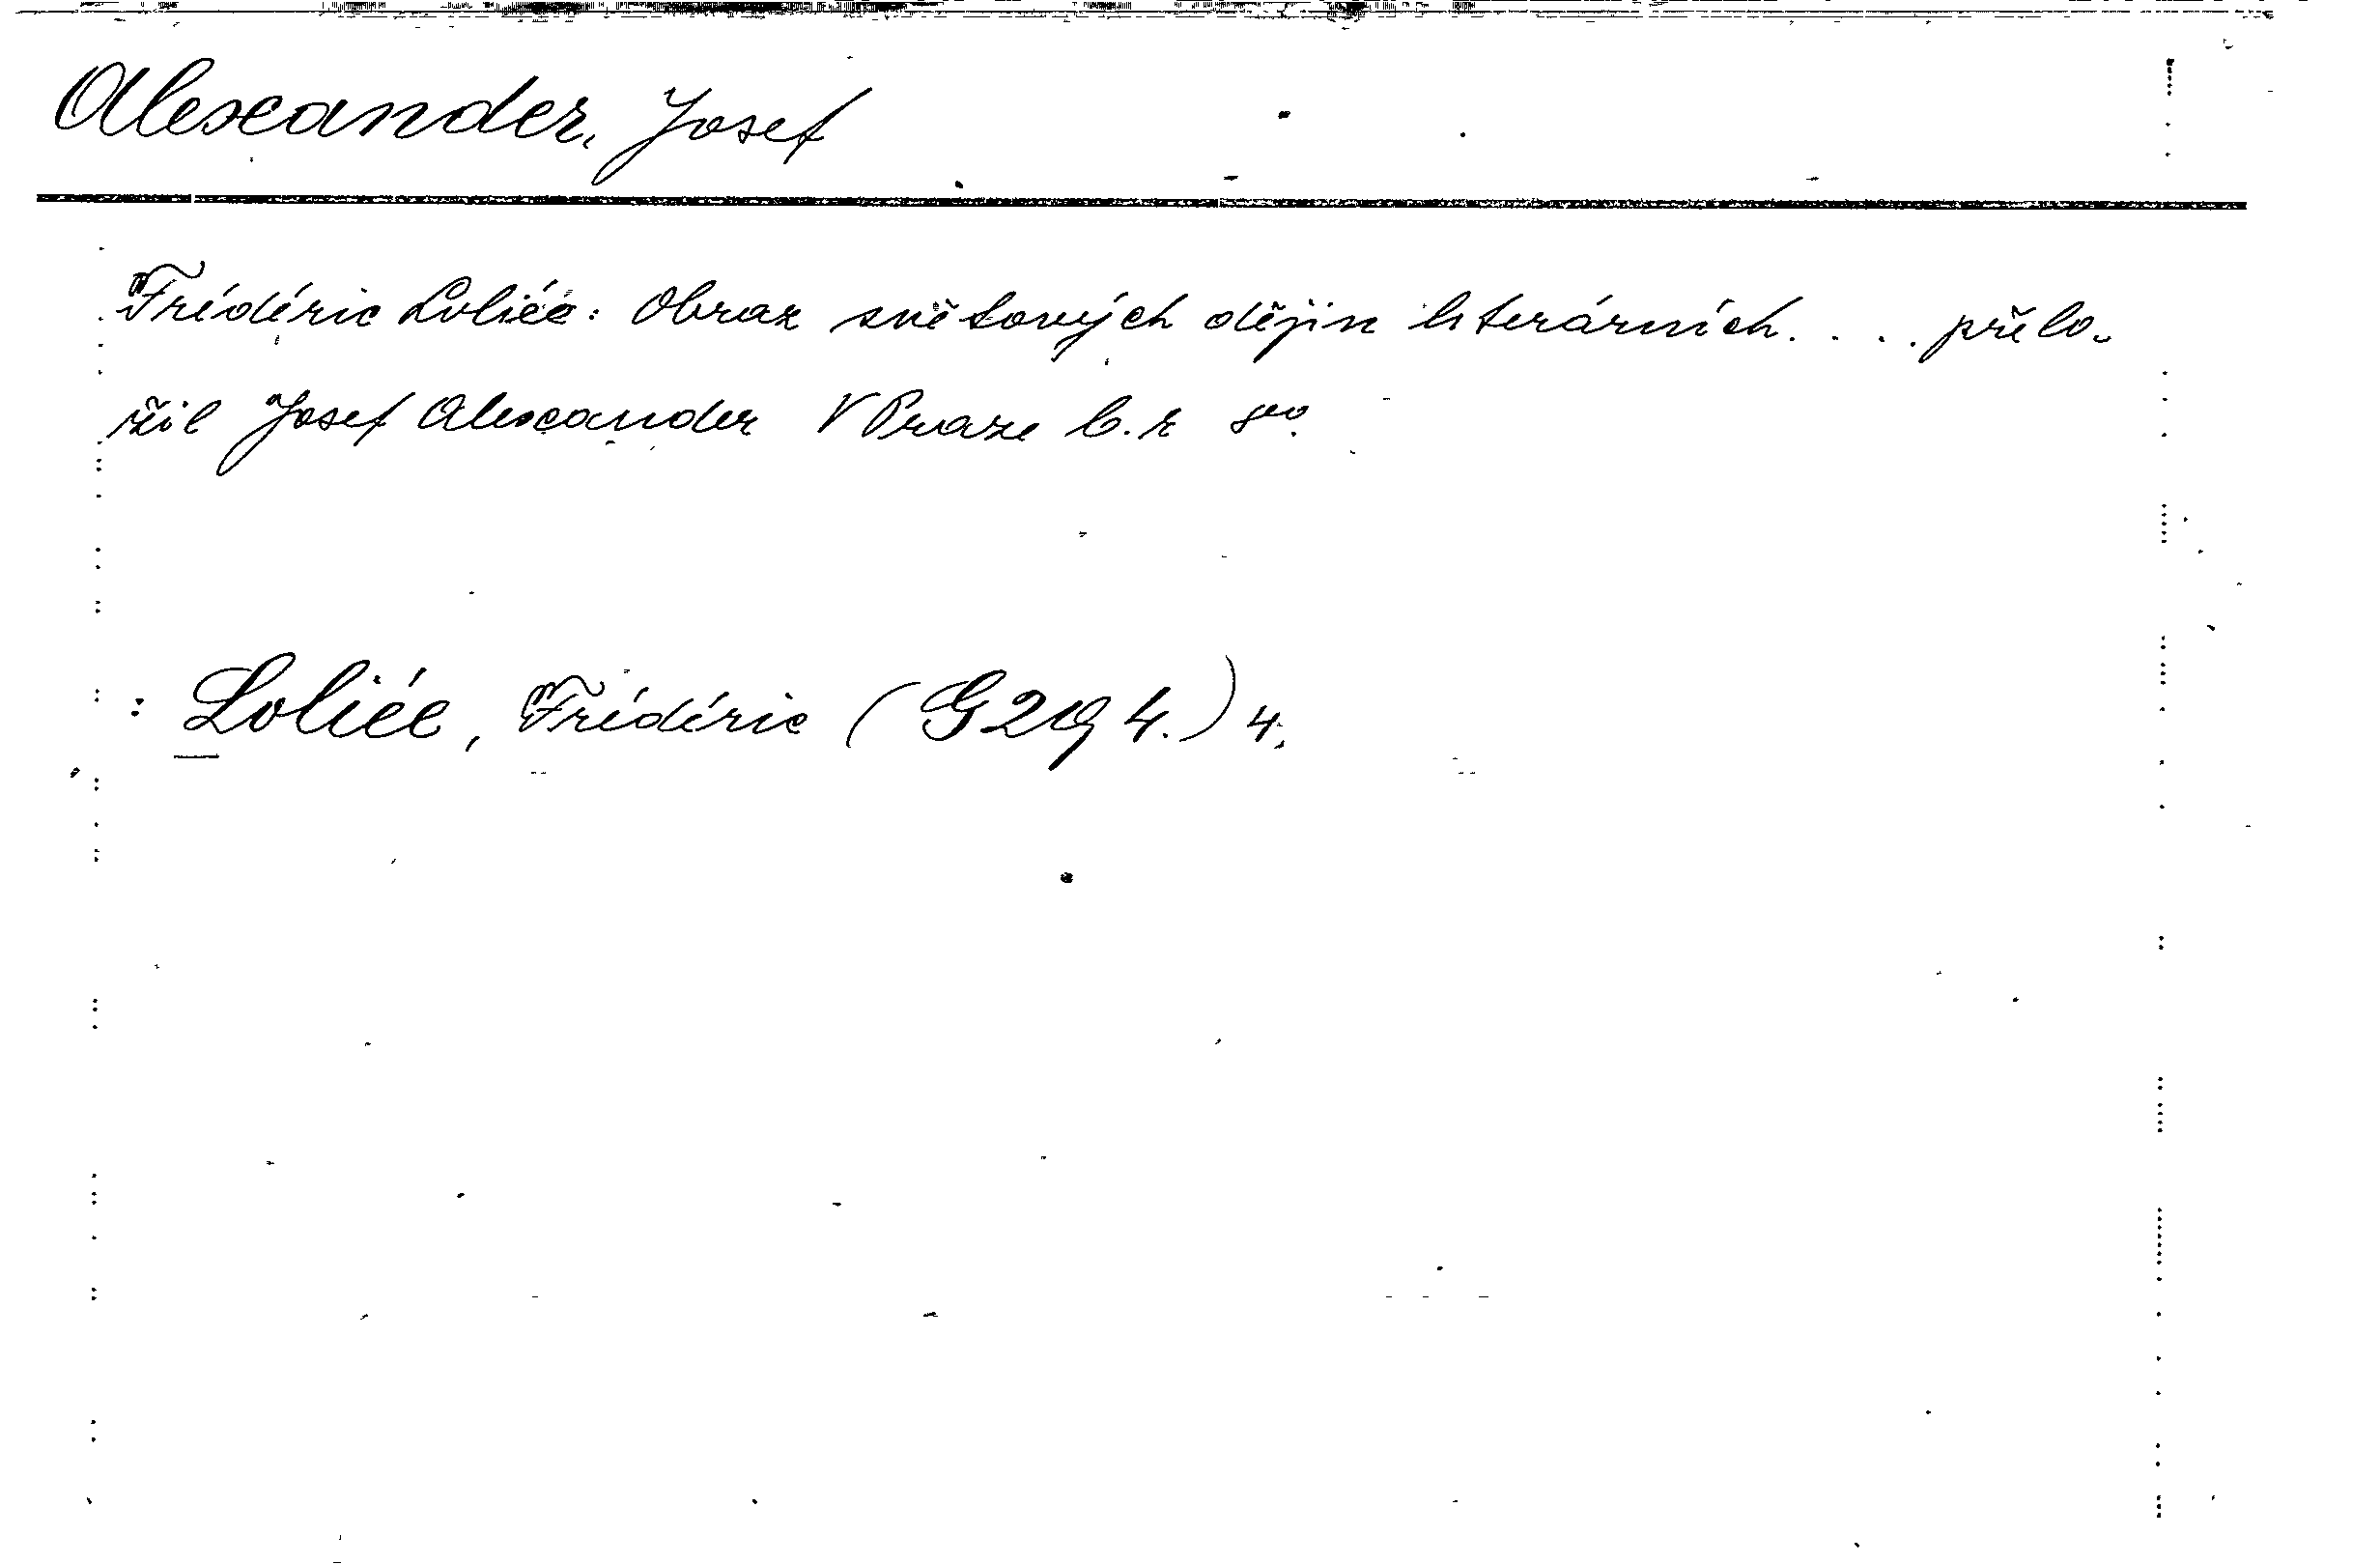 Alexander, Josef
Frédéric Loliée: Obraz světových dějin literárních.... přelo-
žil Josef Alexander V Praze b.r 8vo.
: Loliée, Frédéric (G 29 4.) 4.